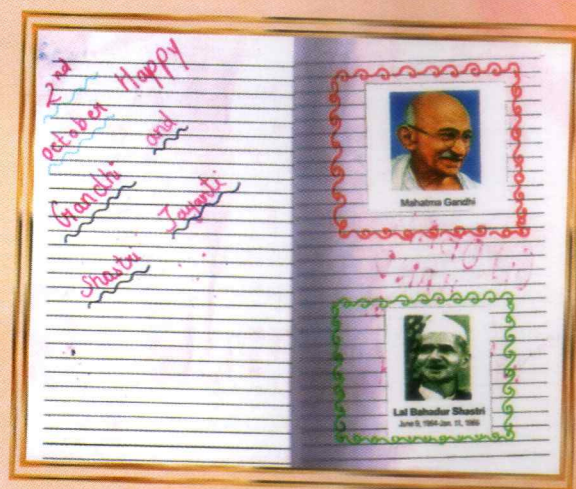 2nd
October Happy
Gandhi and
Shastri Jayanti
Mahatma Gandhi
Lal Bahadur Shastri
June 9, 1964-Jan. 11, 1966